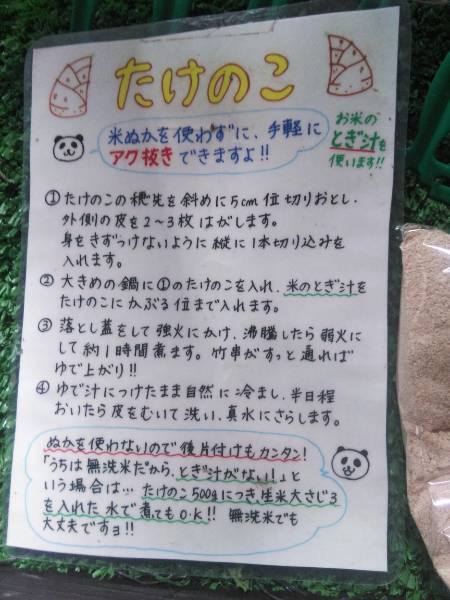 たけのこ
米ぬかを使わずに、手軽に
アク抜きできますよ!!
お米の
とぎ汁を
使います!!
①たけのこの穂先を斜めに5cm位切りおとし、
外側の皮を2〜3枚はがします。
身をきずつけないように縦に1本切り込みを
入れます。
②大きめの鍋に①のたけのこを入れ、米のとぎ汁を
たけのこにかぶる位まで入れます。
③落とし蓋をして強火にかけ、沸騰したら弱火に
して約1時間煮ます。竹串がすっと通れば
ゆで上がり!!
④ゆで汁につけたまま自然に冷まし、半日程
おいたら皮をむいて洗い、真水にさらします。
ぬかを使わないので後片付けもカンタン!
「うちは無洗米だから、とぎ汁がない!」と
いう場合は…たけのこ500gにつき生米大さじ3
を入れた水で煮てもO.K!! 無洗米でも
大丈夫ですョ!!